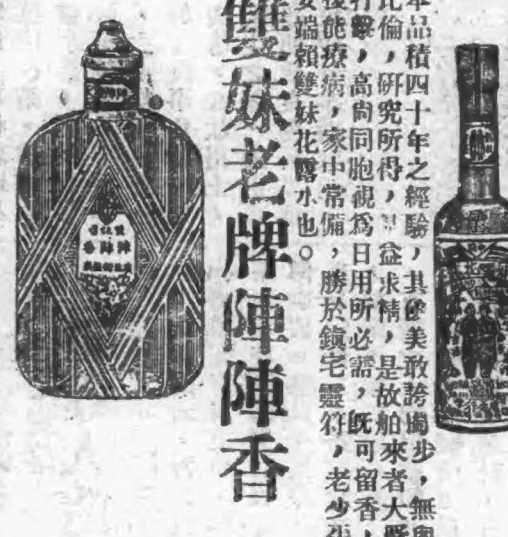 本品積四十年之經驗，其美敢誇獨步，無與
比倫，研究所得，益求精，是故舶來者大
打擊，高尚同胞視爲日用所必需，既可留香，
復能療病，家中常備，勝於鎮宅靈符，老少平
安端賴雙妹花露水也。
雙妹老牌陣陣香
陣陣香